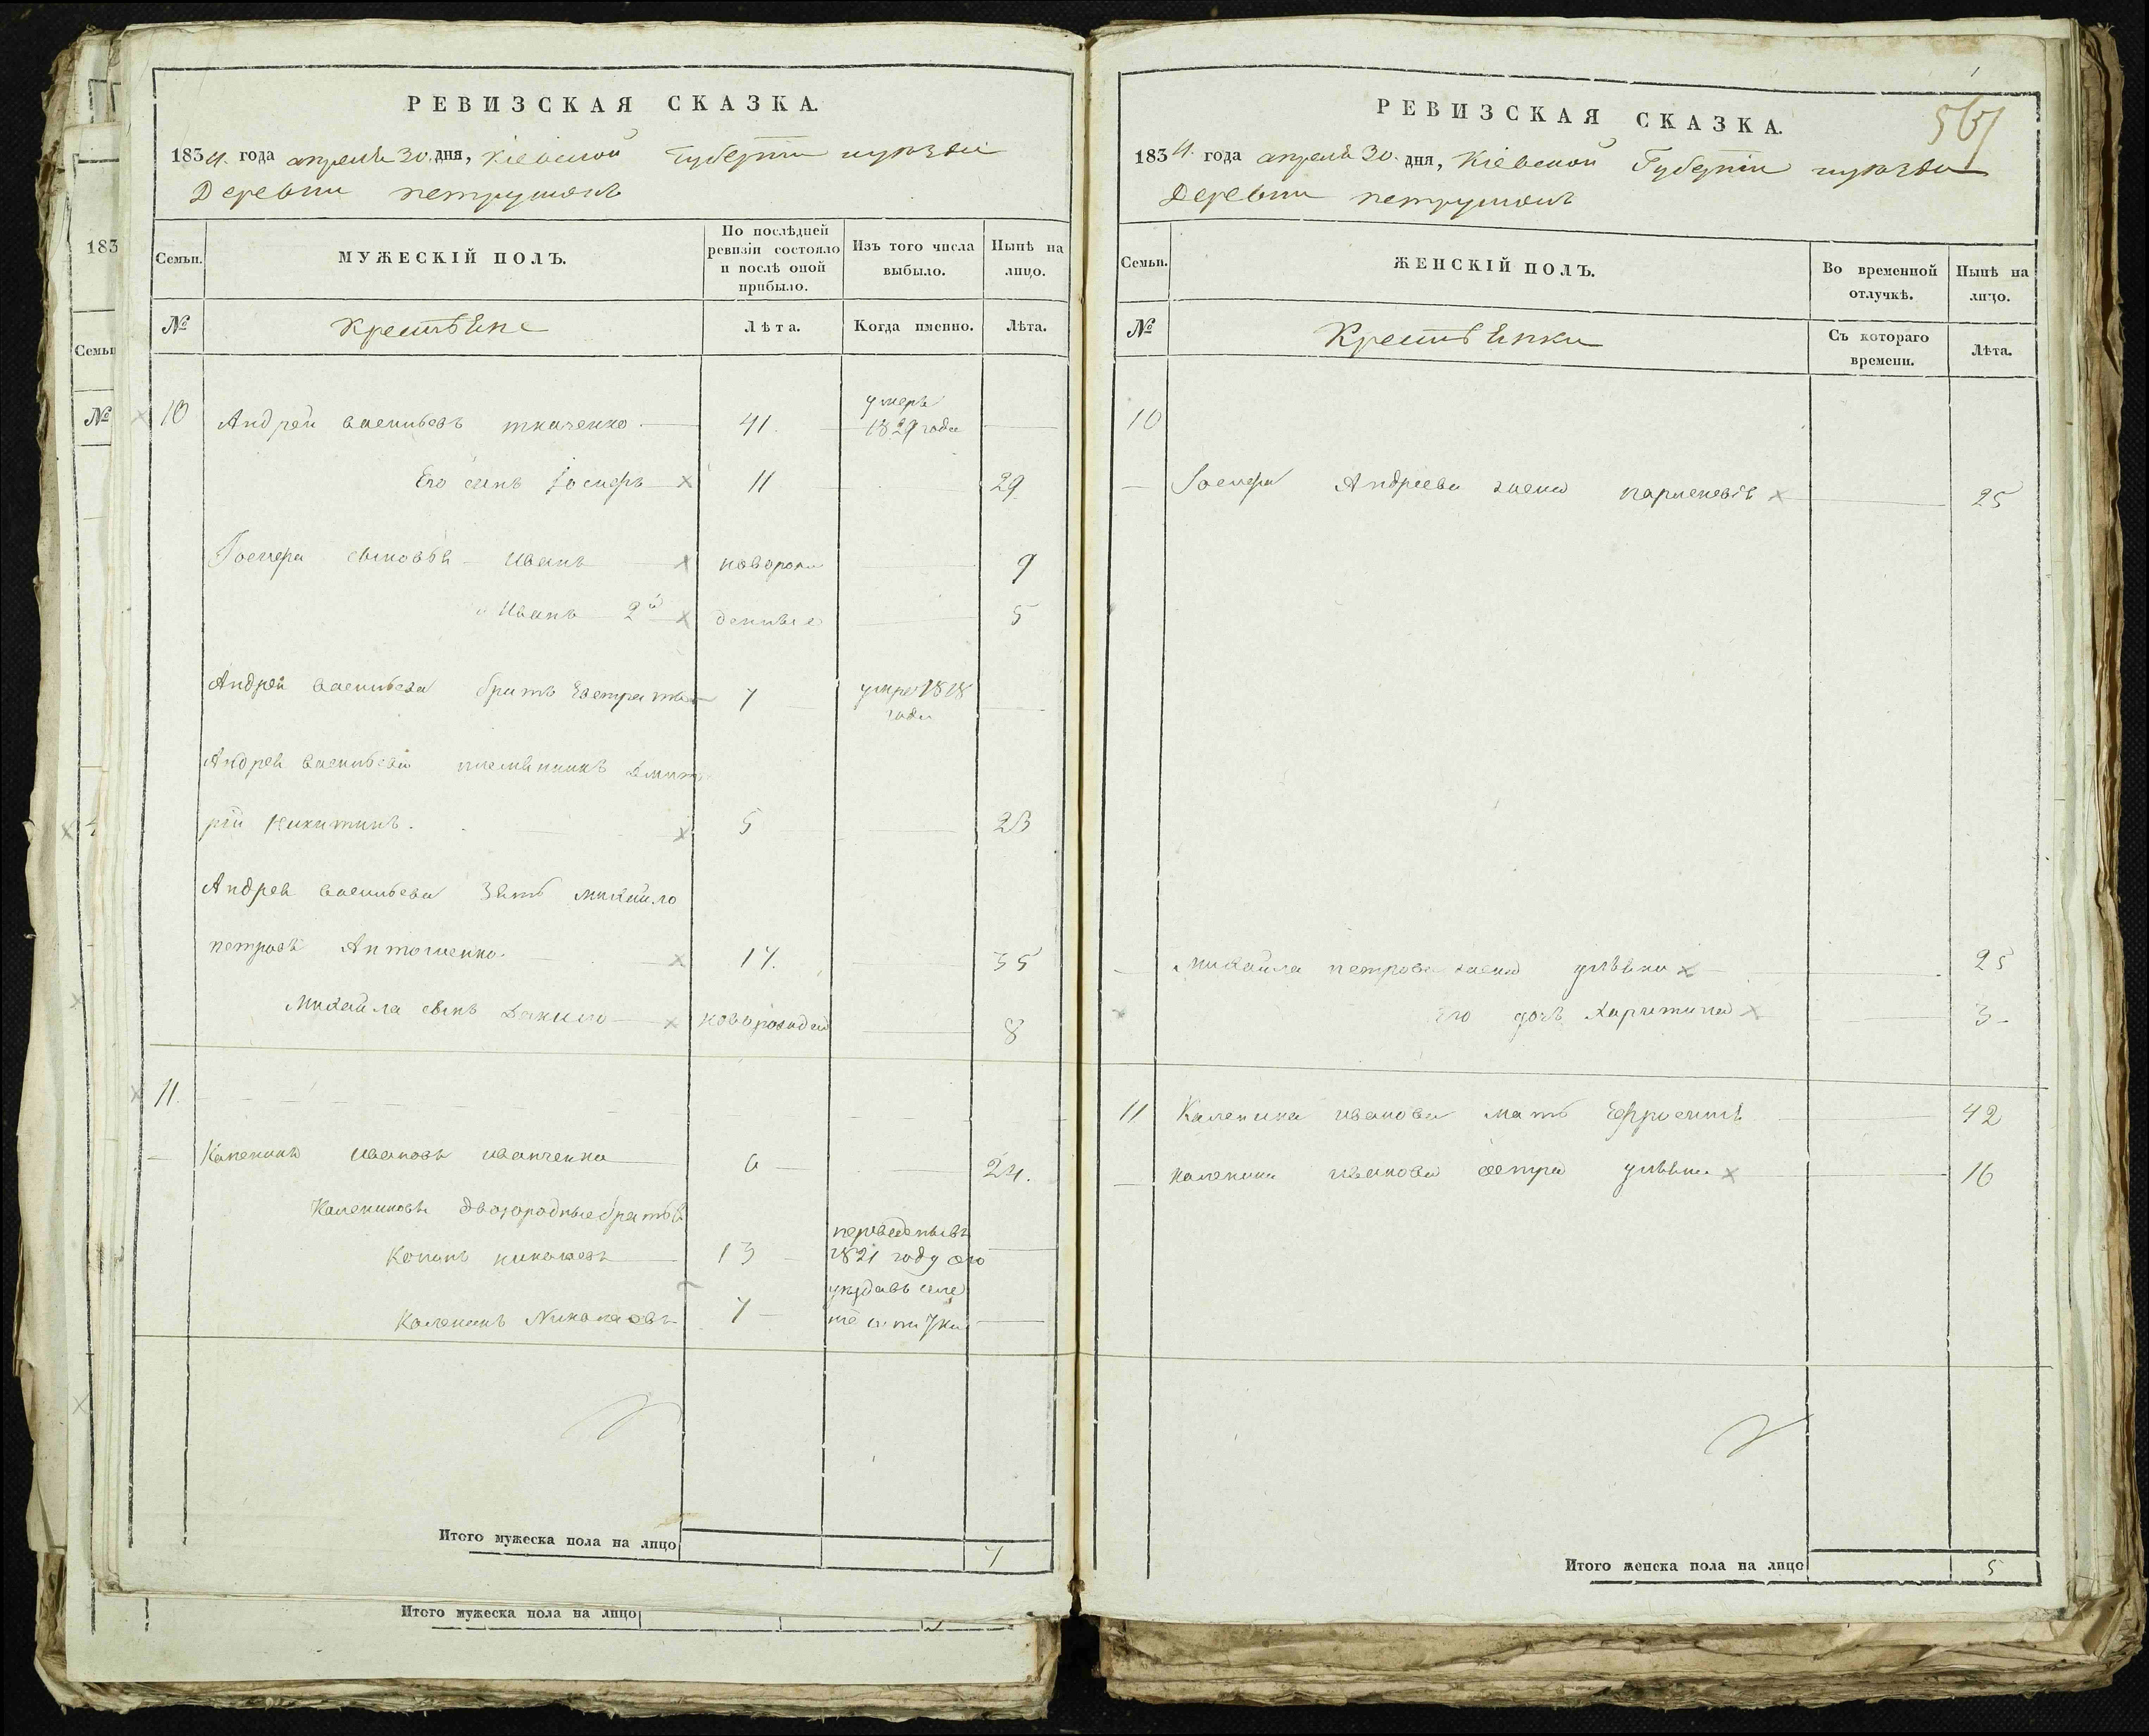 РЕВИЗСКАЯ СКАЗКА.
1834. года апреля 30. дня, Кіевской Губерніи
Деревни петрушокъ
Семьи.
МУЖЕСКІЙ ПОЛЪ.
По послѣдней ревизіи состояло и послѣ оной прибыло.
Изъ того числа выбыло.
Нынѣ на лицо.
№
Крестьяне
Лѣта.
Когда именно.
Лѣта.
10 Андрей васильевъ ткаченко 41. умеръ 1829 года
Его сынъ Іосифъ 11 29
Іосифа сыновья Иванъ новорож 9
Иванъ 2й денные 5
Андрея васильева братъ Евстратій 7 умре 1818 года
Андрея васильева племянникъ дмит
рій Никитинъ. 5 23
Андрея васильева зять михайло
петровъ Антоненко. 17. 35
Михайла сынъ данило новорожден 8
11.
Каленикъ ивановъ иванченко 6 24.
Калениковы двоюродные братья
Кононъ николаевъ 13 переведены въ 1821 году
Каленикъ Николаевъ 7
Итого мужеска пола на лицо 7
Итого мужеска пола на лицо
183
Семьи
№
РЕВИЗСКАЯ СКАЗКА.
567
1834. года апреля 30. дня, Кіевской Губерніи
Деревни петрушокъ
Семьи.
ЖЕНСКІЙ ПОЛЪ.
Во временной отлучкѣ.
Нынѣ на лицо.
№
Крестьянки
Съ котораго времени.
Лѣта.
10
Іосифа Андреева жена 25
михайла петрова жена ульяна 25
Его дочь Харитина 3
11 Каленика иванова мать Ефросинія 42
каленика иванова сестра ульяна 16
Итого женска пола на лицо 5